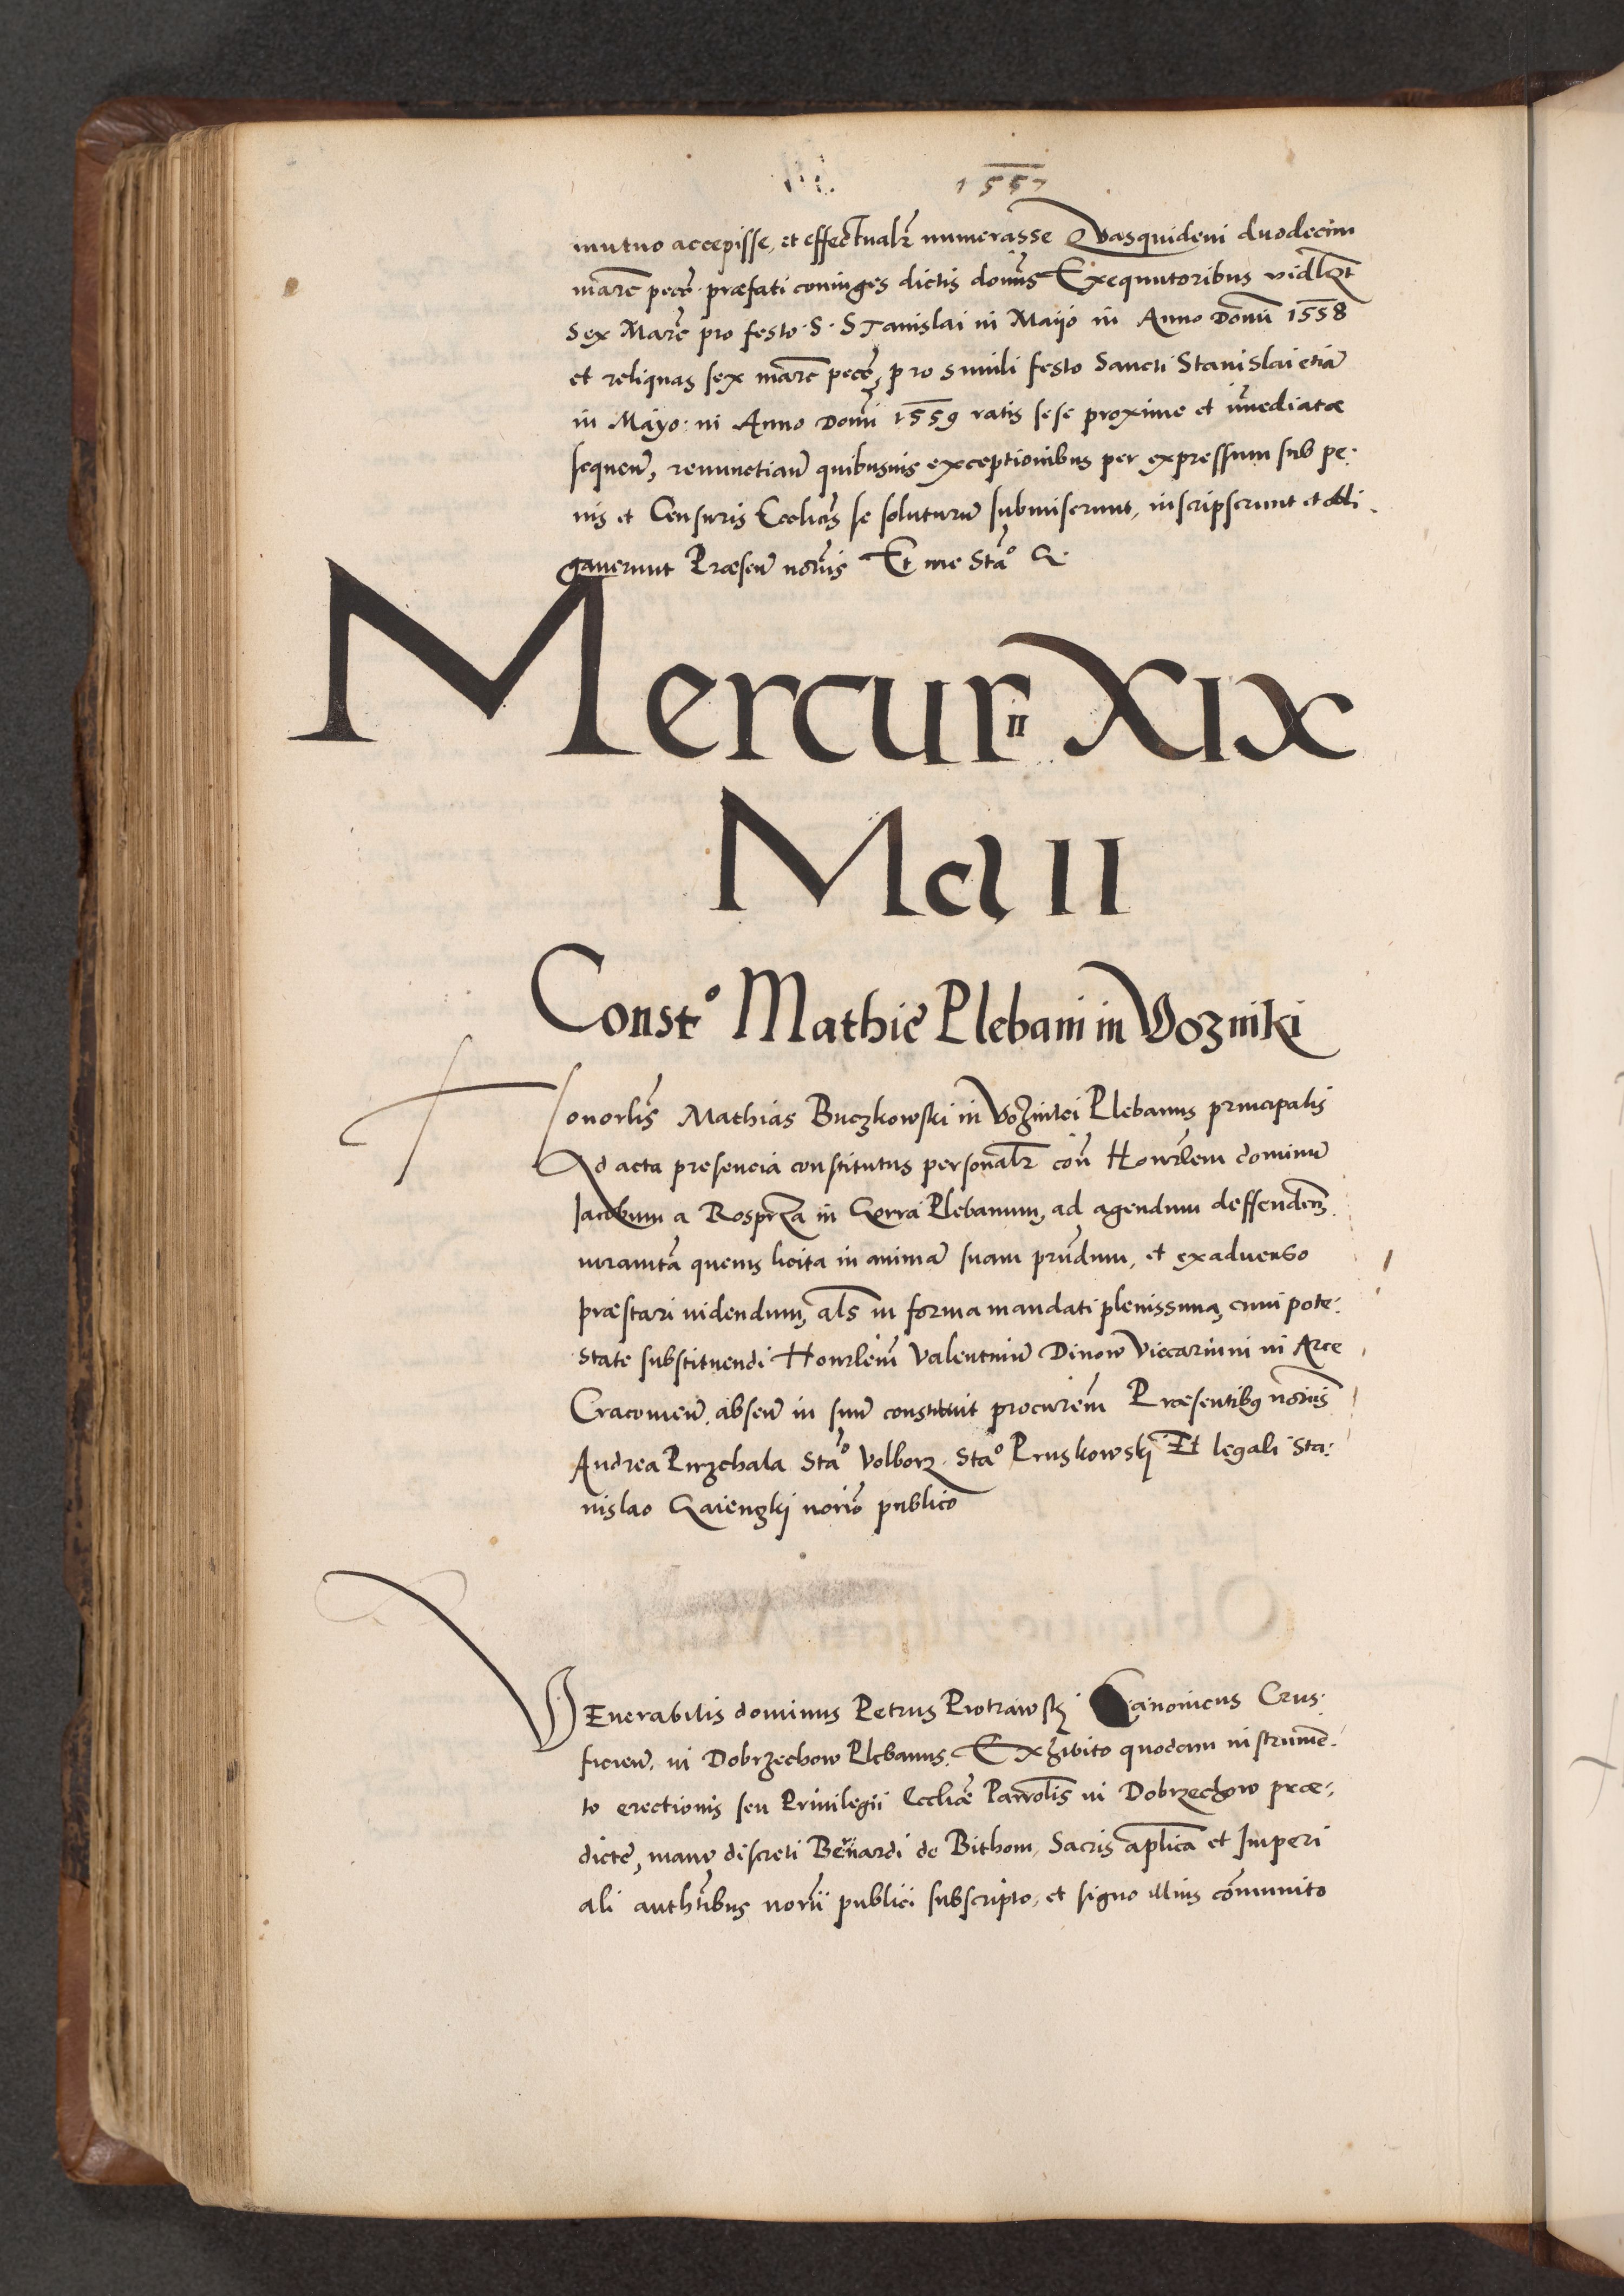 1557
mutuo accepisse, et effectualr̃ numerasse Quasquideni duodecim
marc̃ pecc̃ præfati coniuges dictis domĩs Exequutoribus vidlzt
Sex Marc̃ pro festo S. Stanislai in Maijo in Anno Domĩ 1558
et reliquas sex marc̃ pecc̃, pro simili festo Sancti Stanislai etiã
in Mayo in Anno Domĩ 1559 ratis sese proxime et im̃ediatæ
sequeñ, renunctiañ quibusuis exceptionibus per expressum sub pe:
nis et Censuris Ecclicis se soluturũ submiserunt, inscripserunt et obli
gauerunt Præseñ norĩis Et me Stã° &
Mercurii XIX
Mcỉ II
Const° Mathiẽ Plebani in Vozniki
Honorlĩs Mathias Buczkowski in Voznikj Plebanus principalis
Ad acta presencia constitutus personalr̃ coñ Honorlem dominũ
Jacobum a Rosprza in Gorra Plebanum, ad agendum deffendenm̃
iuramtã quenis licita in animã suam prñdum, et exaduerso
præstari uidendum, als̃ in forma mandati plenissima, cum pote:
state substituendi Honorlem̃ Valentinũ Dinow Viccarium in Arce
Cracouieñ. abseñ in suũ constituit procurem̃ Præsentibus norĩis
Andrea Pirzchala Stã° Volborz. Stã° Pruskowskj Et legali Sta:
nislao Gaienzkj norĩo publico
VEnerabilis dominus Petrus Piotrawskj Canonicus Crus:
ficieñ. in Dobrzechow Plebanus. Exhibito quodam instrumẽ:
to erectionis seu Priuilegii Eccliæ Parrolis in Dobrzechow præ:
dictẽ, manu discreti Bernardi de Bithom, Sacris aplica et Imperi
ali authtibus norĩi publici subscripto, et signo illius com̃unito